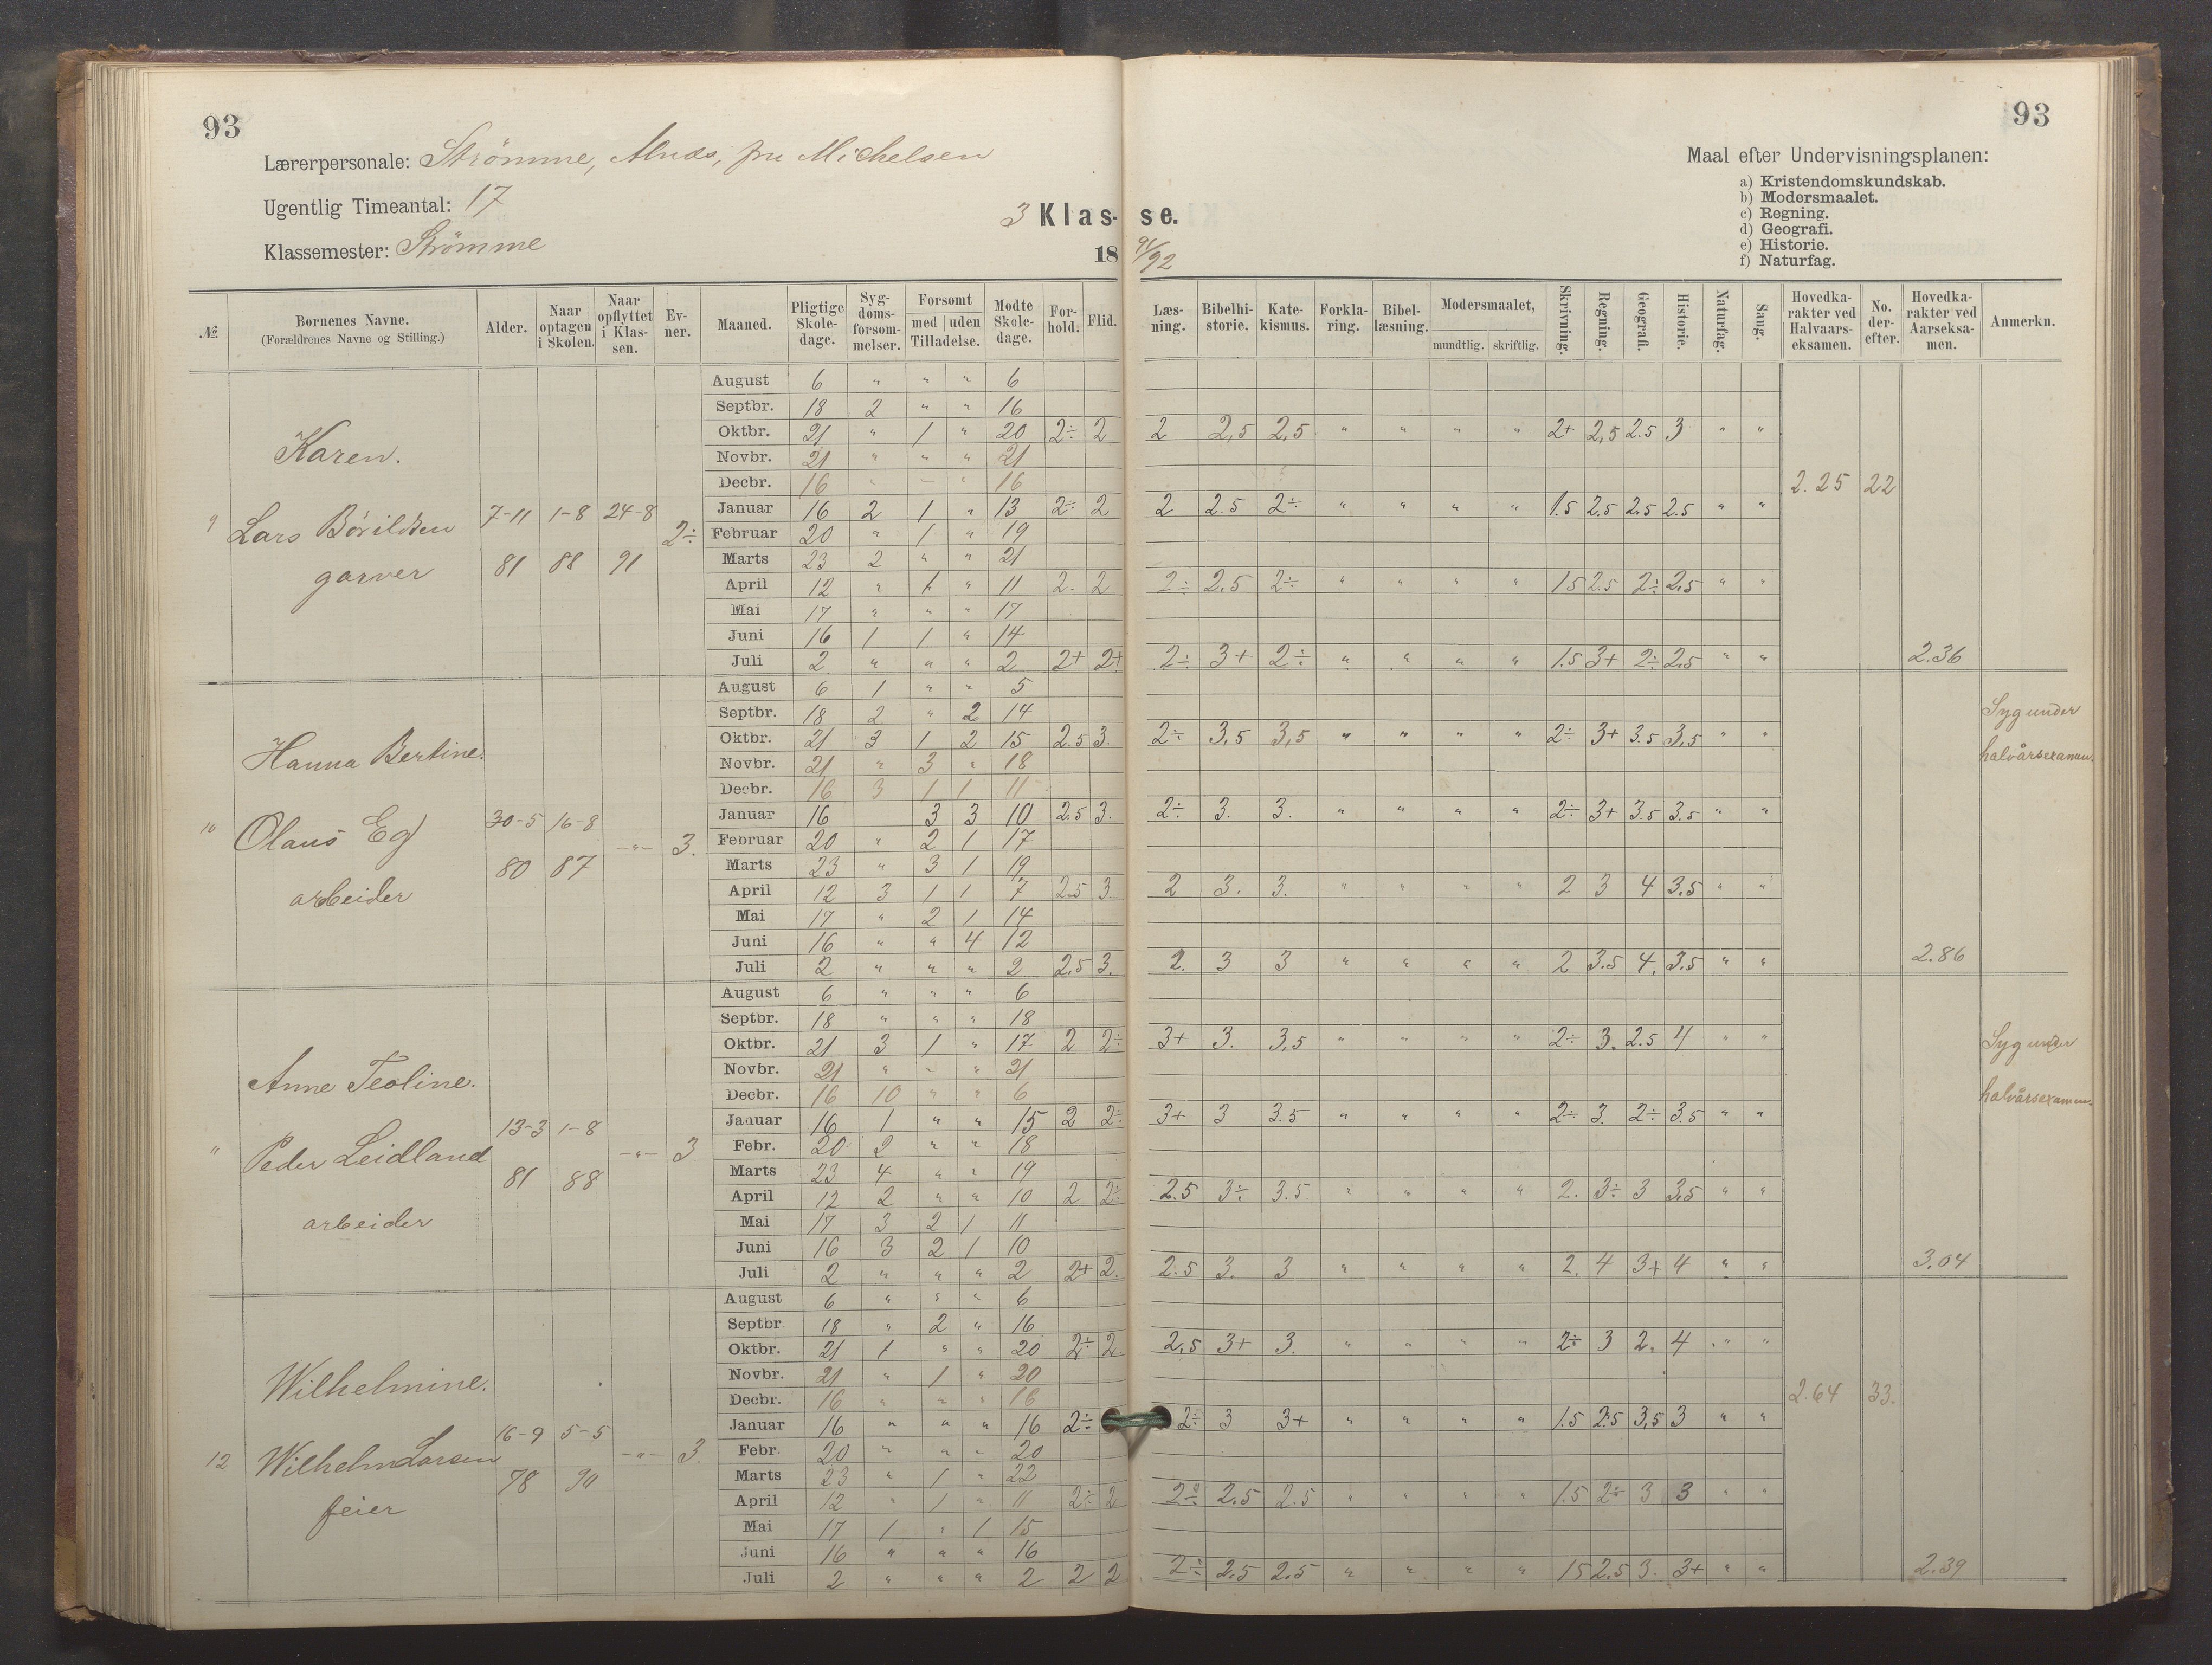 93
93
Lærerpersonale: Strömme, Alnæs, fru Michelsen
Ugentlig Timeantal: 17
Klassemester: Strömme
3 Klas- se.
18 91/92
Maal efter Undervisningsplanen:
a) Kristendomskundskab.
b) Modersmaalet.
c) Regning.
d) Geografi.
e) Historie.
f) Naturfag.
№ Børnenes Navne. (Forældrenes Navne og Stilling.) Alder. Naar optagen i Skolen. Naar opflyttet i Klassen. Evner. Maaned. Pligtige Skoledage. Sygdomsforsømmelser. Forsømt med uden Tilladelse. Mødte Skoledage. Forhold. Flid. Læsning. Bibelhistorie. Katekismus. Forklaring. Bibellæsning. Modersmaalet, mundtlig. skriftlig. Skrivning. Regning. Geografi. Historie. Naturfag. Sang. Hovedkarakter ved Halvaarseksamen. No. derefter. Hovedkarakter ved Aarseksamen. Anmerkn.
9 Karen.
Lars Börildsen
garver
7-11 81 1-8 88 24-8 91 2÷
August 6 " " " 6
Septbr. 18 2 " " 16
Oktbr. 21 " 1 " 20 2÷ 2 2 2,5 2,5 " " " " 2+ 2,5 2.5 3 " "
Novbr. 21 " " " 21
Decbr. 16 " " " 16 2.25 22
Januar 16 2 1 " 13 2÷ 2 2 2.5 2÷ " " " " 1.5 2.5 2.5 2.5 " "
Februar 20 " 1 " 19
Marts 23 2 " " 21
April 12 " 1 " 11 2. 2 2÷ 2.5 2÷ " " " " 15 2.5 2÷ 2.5 " "
Mai 17 " " " 17
Juni 16 1 1 " 14
Juli 2 " " " 2 2+ 2+ 2÷ 3+ 2÷ " " " " 1.5 3+ 2÷ 2.5 " " 2.36
10 Hanna Bertine.
Olaus Eg
arbeider
30-5 80 16-8 87 -"- 3.
August 6 1 " " 5
Septbr. 18 2 " 2 14
Oktbr. 21 3 1 2 15 2.5 3. 2÷ 3,5 3,5 " " " " 2÷ 3+ 3.5 3,5 " "
Novbr. 21 " 3 " 18
Decbr. 16 3 1 1 11
Januar 16 3 3 10 2.5 3. 2÷ 3. 3. " " " " 2÷ 3+ 3.5 3.5 " "
Februar 20 " 2 1 17
Marts 23 " 3 1 19
April 12 3 1 1 7 2.5 3 2 3. 3. " " " " 2 3 4 3.5 " "
Mai 17 " 2 1 14
Juni 16 " " 4 12
Juli 2 " " " 2 2.5 3. 2. 3 3 " " " " 2 3.5 4. 3.5 " " 2.86
Syg under
halvårsexamen.
" Anne Teoline.
Peder Leidland
arbeider
13-3 81 1-8 88 -"- 3
August 6 " " " 6
Septbr. 18 " " " 18
Oktbr. 21 3 1 " 17 2 2÷ 3+ 3. 3,5 " " " " 2÷ 3. 2.5 4 " "
Novbr. 21 " " " 21
Decbr. 16 10 " " 6
Januar 16 1 " " 15 2 2÷ 3+ 3 3.5 " " " " 2÷ 3. 2÷ 3.5 " "
Febr. 20 2 " " 18
Marts 23 4 " " 19
April 12 2 " " 10 2 2÷ 2.5 3÷ 3.5 " " " " 2. 3÷ 3 3.5 " "
Mai 17 3 2 1 11
Juni 16 3 2 1 10
Juli 2 " " " 2 2+ 2. 2.5 3. 3 " " " " 2. 4 3+ 4 " " 3.04
Syg under
halvårsexamen.
12 Wilhelmine.
Wilhelm Larsen
feier
16-9 78 5-5 90 -"- 3.
August 6 " " " 6
Septbr 18 " 2 " 16
Oktbr. 21 1 " " 20 2÷ 2 2,5 3+ 3. " " " " 2÷ 3 2. 4 " "
Novbr. 21 " 1 " 20
Decbr. 16 " " " 16 2.64 33.
Januar 16 " " " 16 2÷ 2÷ 3 3+ " " " " 1.5 2.5 3,5 3 " "
Febr. 20 " " " 20
Marts 23 " 1 " 22
April 12 " 1 " 11 2÷ 2 2÷ 2.5 2.5 " " " " 1.5 2÷ 3 3 " "
Mai 17 1 " 1 15
Juni 16 " " " 16
Juli 2 " " " 2 2 2 2÷ 2.5 2.5 " " " " 15 2.5 3. 3+ " " 2.39